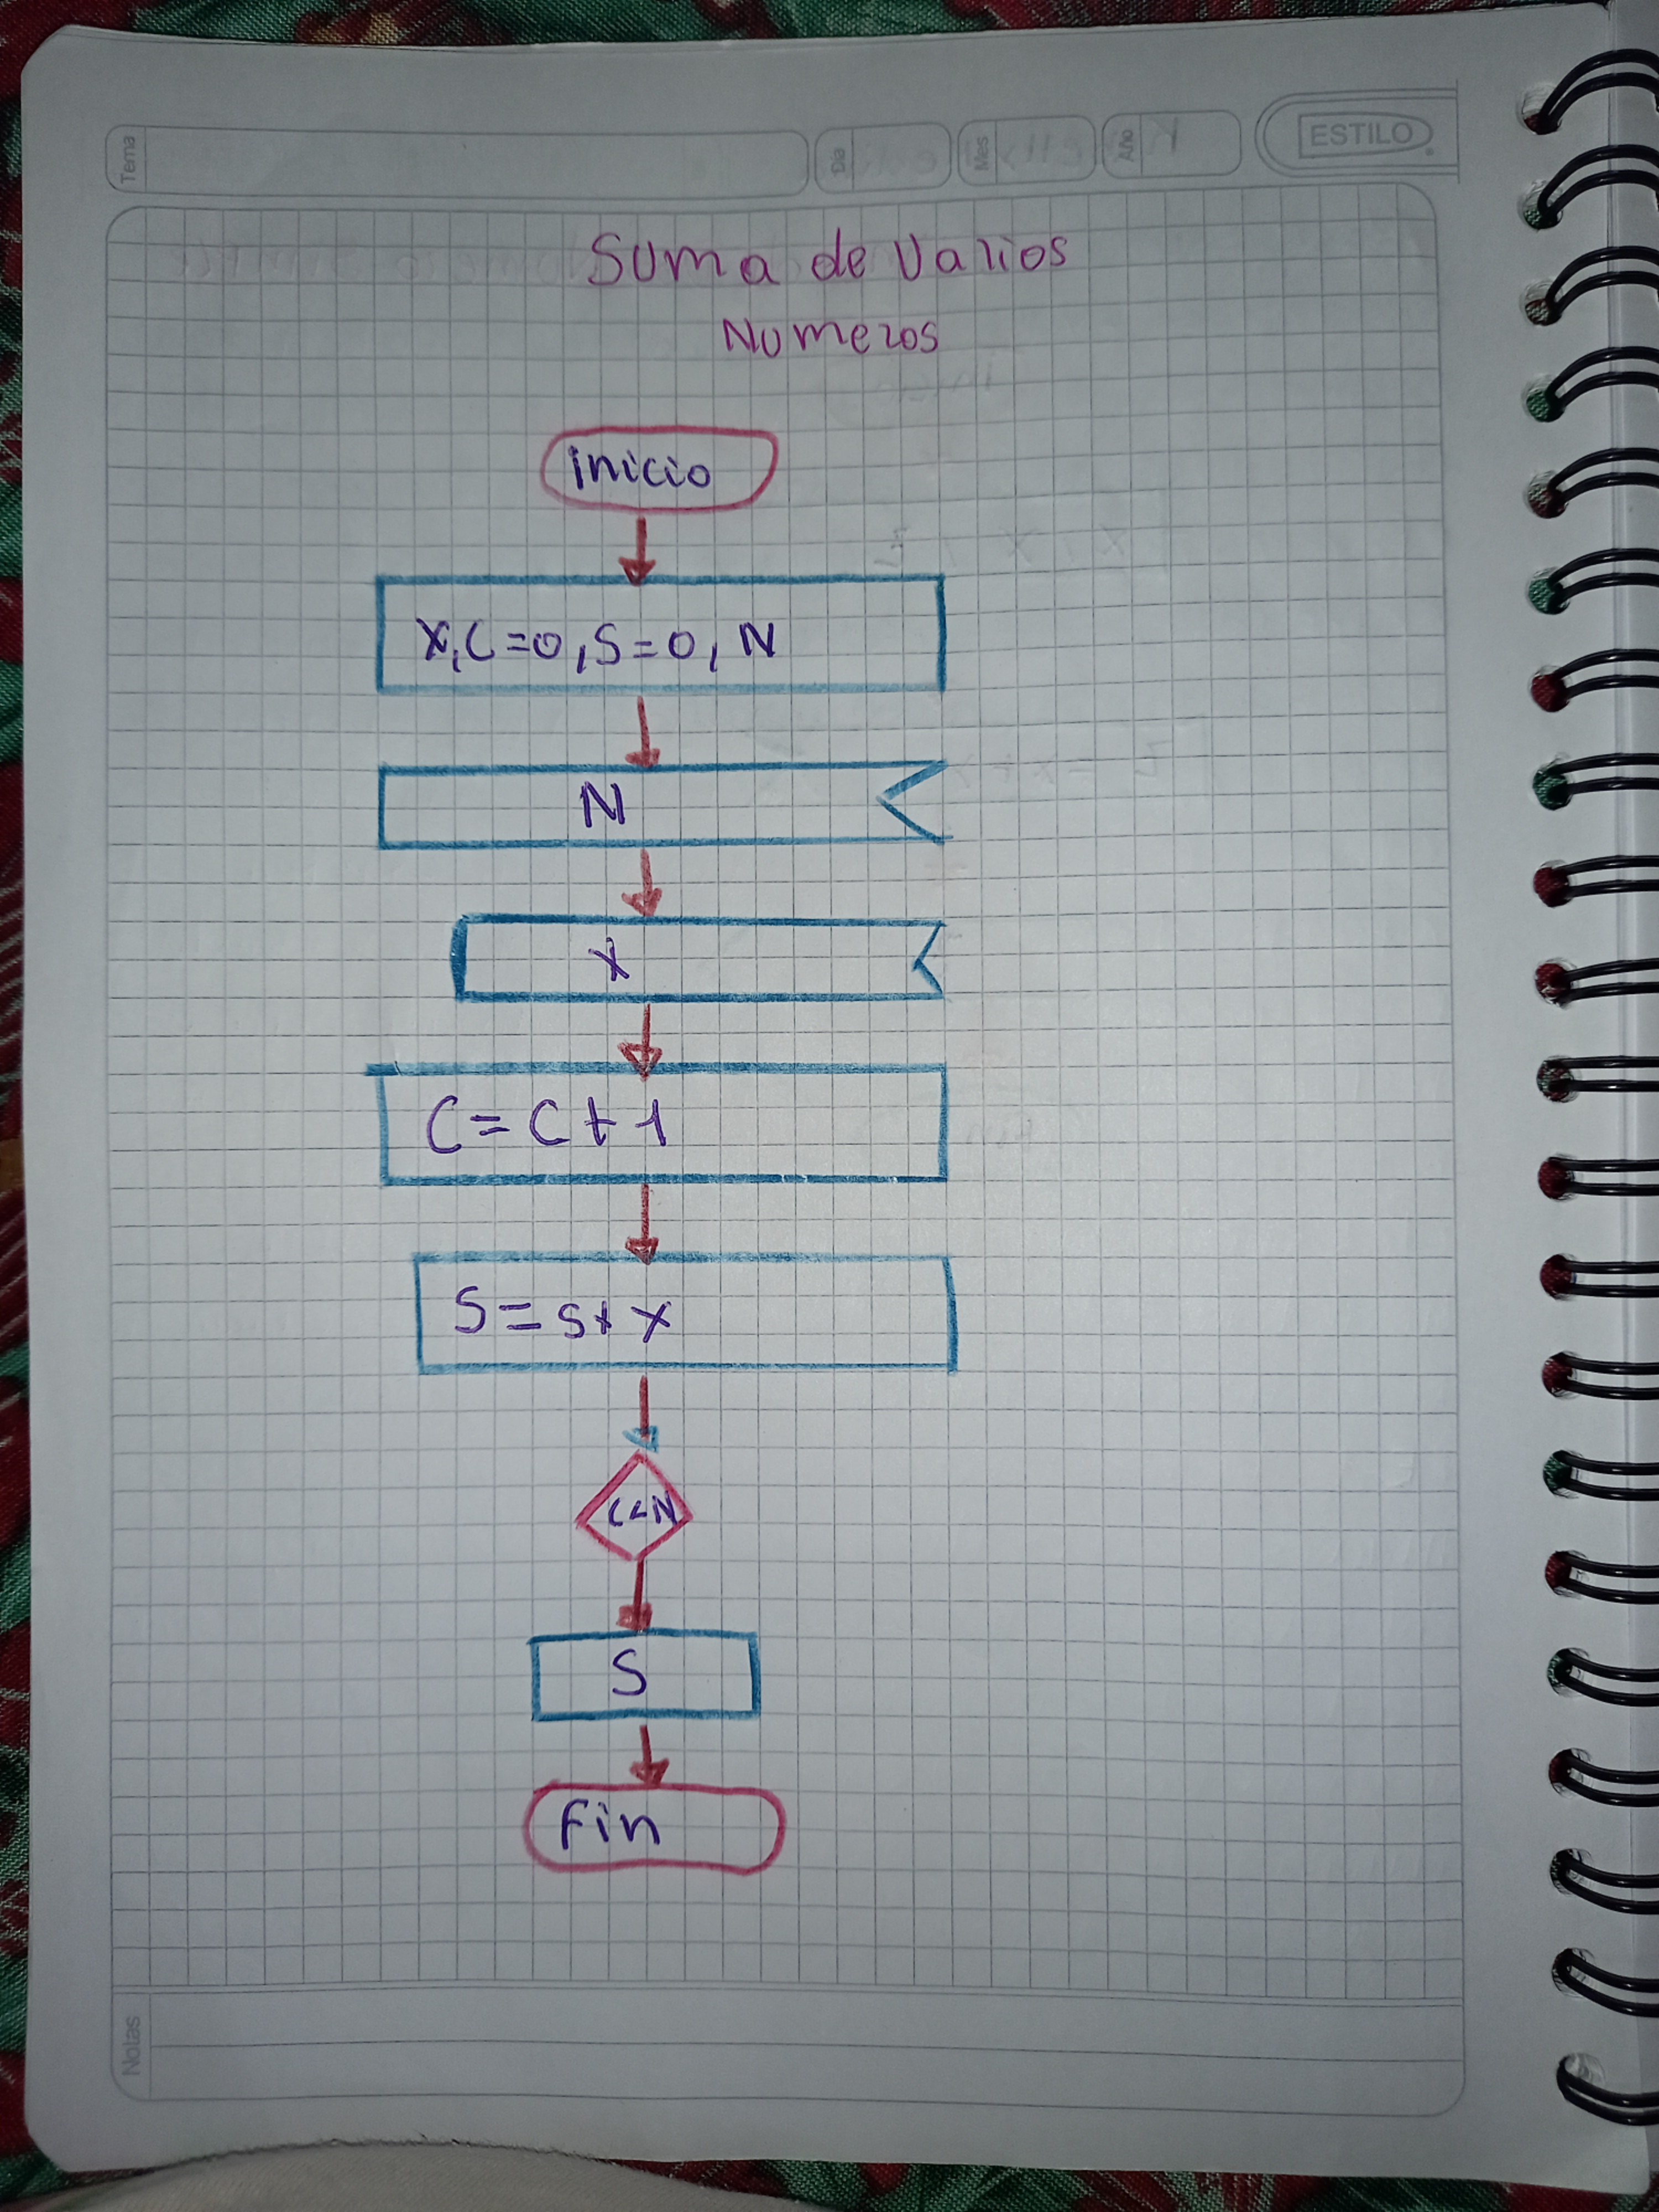 Tema
Dia
Mes
Año
ESTILO
Suma de Varios
Numeros
inicio
X, C=0, S=0, N
N
X
C = C + 1
S = S + X
C<N
S
Fin
Notas